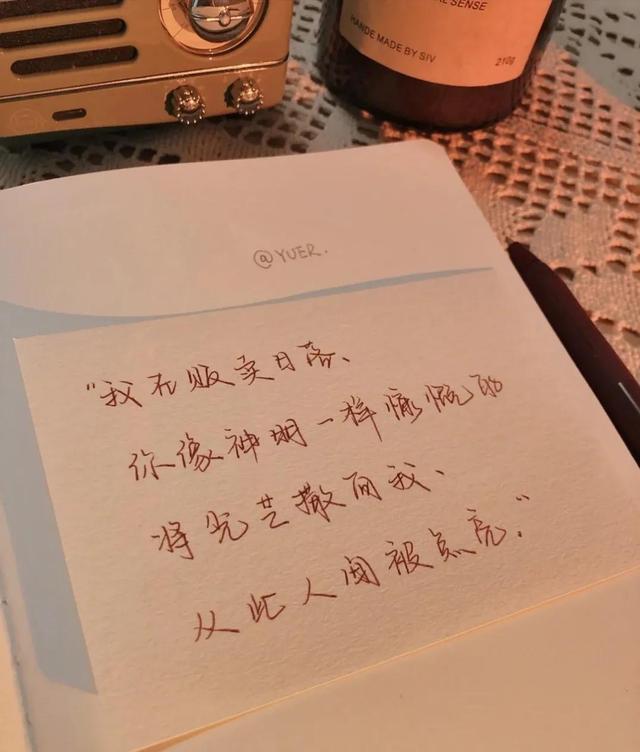 AL SENSE
HANDE MADE BY SIV
210g
@YUER.
“我在贩卖日落、
你像神明一样慷慨的
将光芒撒向我、
从此人间被点亮.”